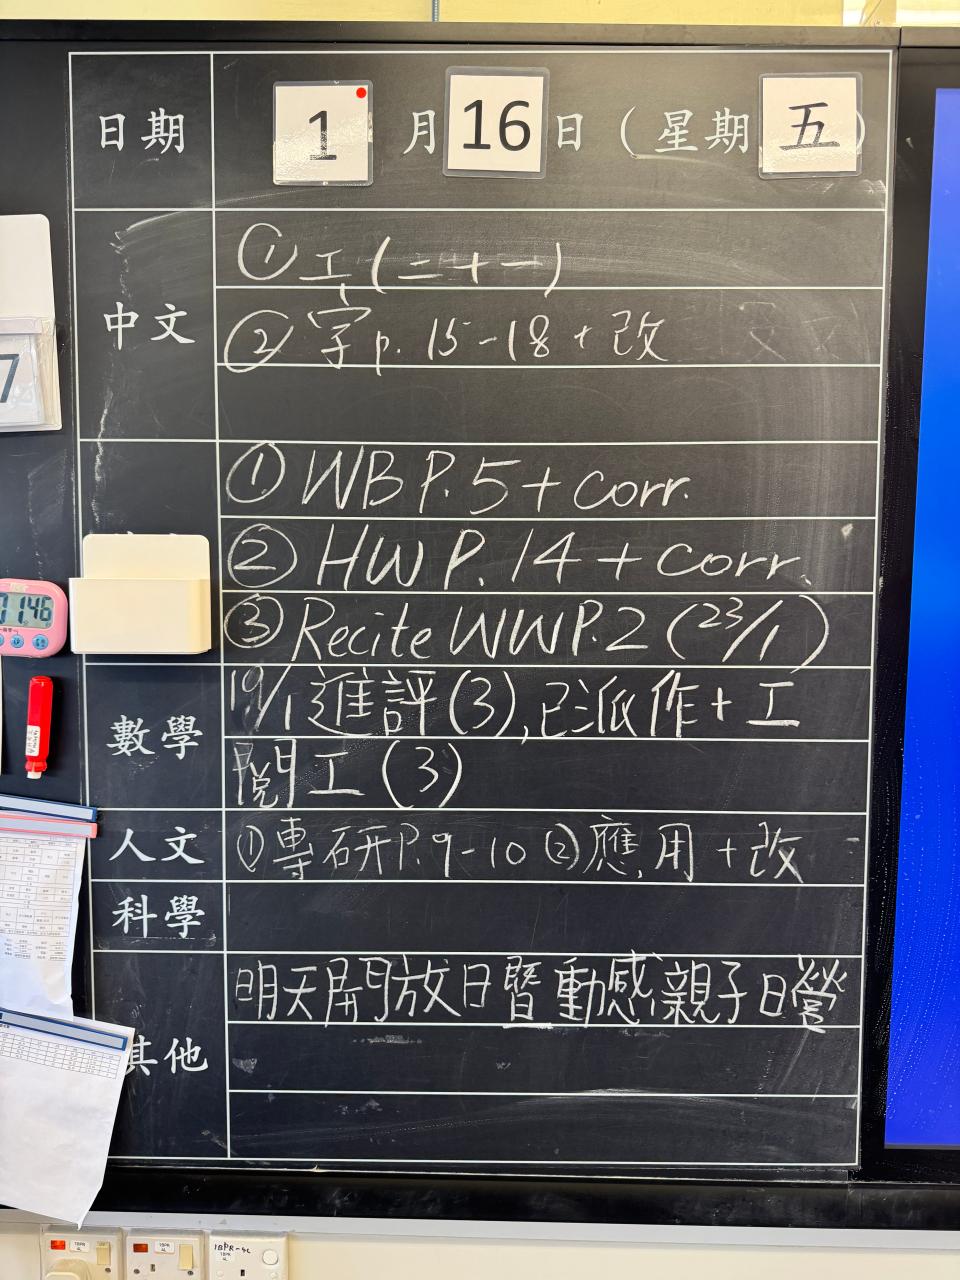 日期 1 月 16 日 (星期 五 )
中文
① 工 (二十一)
② 字 p. 15-18 + 改
① WB P. 5 + corr.
② HW P. 14 + corr.
③ Recite WW P. 2 (23/1)
數學
19/1 進評 (3), 已派作 + 工
閱工 (3)
人文 ① 專研 P. 9-10 ② 應用 + 改
科學
其他
明天開放日暨動感親子日營
7
1:46
1BPR-4L